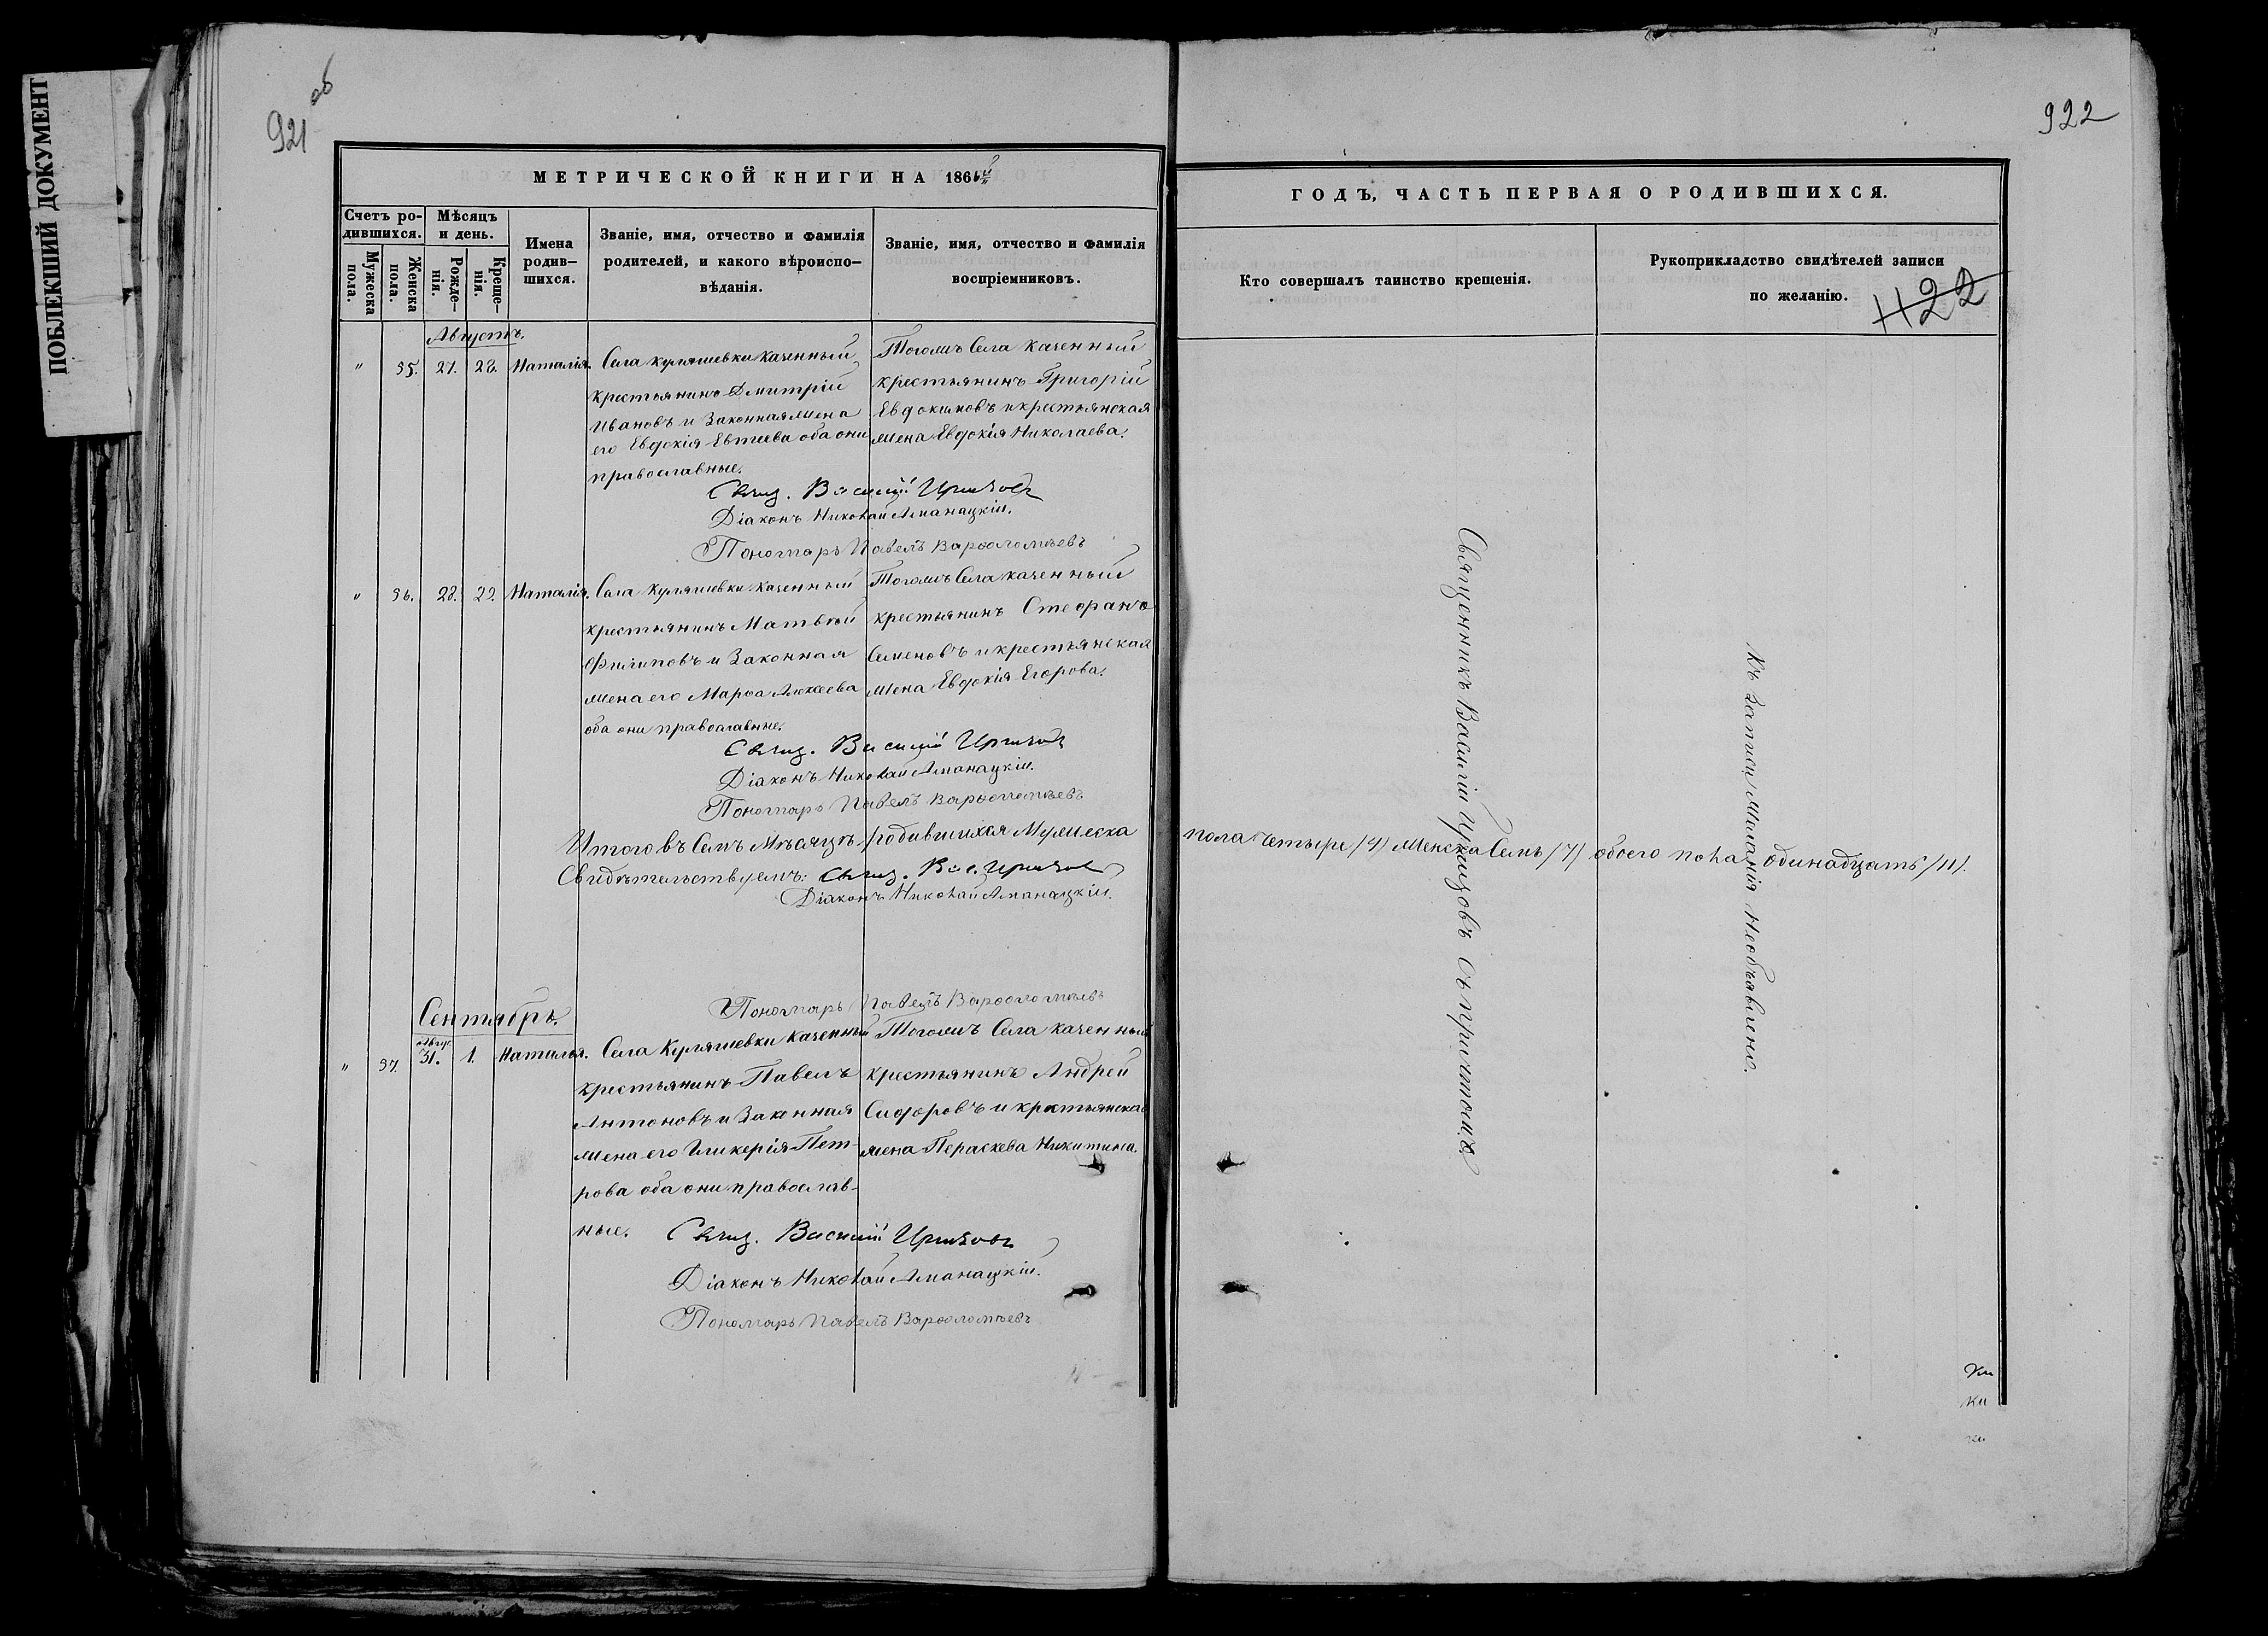 ПОБЛЕКШИЙ ДОКУМЕНТ
921 об
922
МЕТРИЧЕСКОЙ КНИГИ НА 186
Счетъ ро-
дившихся.
Мужеска
пола.
Женска
пола.
Мѣсяцъ
и день.
Рожде-
нія.
Креще-
нія.
Имена
родив-
шихся.
Званіе, имя, отчество и фамилія
родителей, и какого вѣроиспо-
вѣданія.
Званіе, имя, отчество и фамилія
воспріемниковъ.
Августъ.
" 35. 27. 28. Наталія.
Села Куляшевки казенный
крестьянинъ Дмитрій
Ивановъ и законная жена
его Евдокія Евтеева оба они
православные.
Тогожъ Села казенный
крестьянинъ Григорій
Евдокимовъ и крестьянская
жена Евдокія Николаева.
Свящ. Василій
Діаконъ Николай Аманацкій.
Пономарь Павелъ Варѳоломѣевъ
" 36. 28. 29. Наталія.
Села Куляшевки казенный
крестьянинъ Матвѣй
Филиповъ и законная
жена его Марѳа Алексеева
оба они православные.
Тогожъ Села казенный
крестьянинъ Стефанъ
Семеновъ и крестьянская
жена Евдокія Егорова.
Свящ. Василій
Діаконъ Николай Аманацкій.
Пономарь Павелъ Варѳоломѣевъ
Итого въ Семъ Мѣсяцѣ родившихся Мужеска
Свидѣтельствуемъ: Свящ. Вас.
Діаконъ Николай Аманацкій.
Пономарь Павелъ Варѳоломѣевъ
Сентябрь.
Авгус.
" 37. 31. 1. Наталья.
Села Куляшевки казенный
крестьянинъ Павелъ
Антоновъ и законная
жена его Гликерія Пет-
рова оба они православ-
ные.
Тогожъ Села казенный
крестьянинъ Андрей
Сидоровъ и крестьянская
жена Параскева Никитина.
Свящ. Василій
Діаконъ Николай Аманацкій.
Пономарь Павелъ Варѳоломѣевъ
ГОДЪ, ЧАСТЬ ПЕРВАЯ О РОДИВШИХСЯ.
Кто совершалъ таинство крещенія.
Рукоприкладство свидѣтелей записи
по желанію.
1122
Священникъ Василій съ причтомъ
Къ записи желанія необъявлено.
пола четыре /4/ женска семь /7/ обоего пола одинадцать /11/.